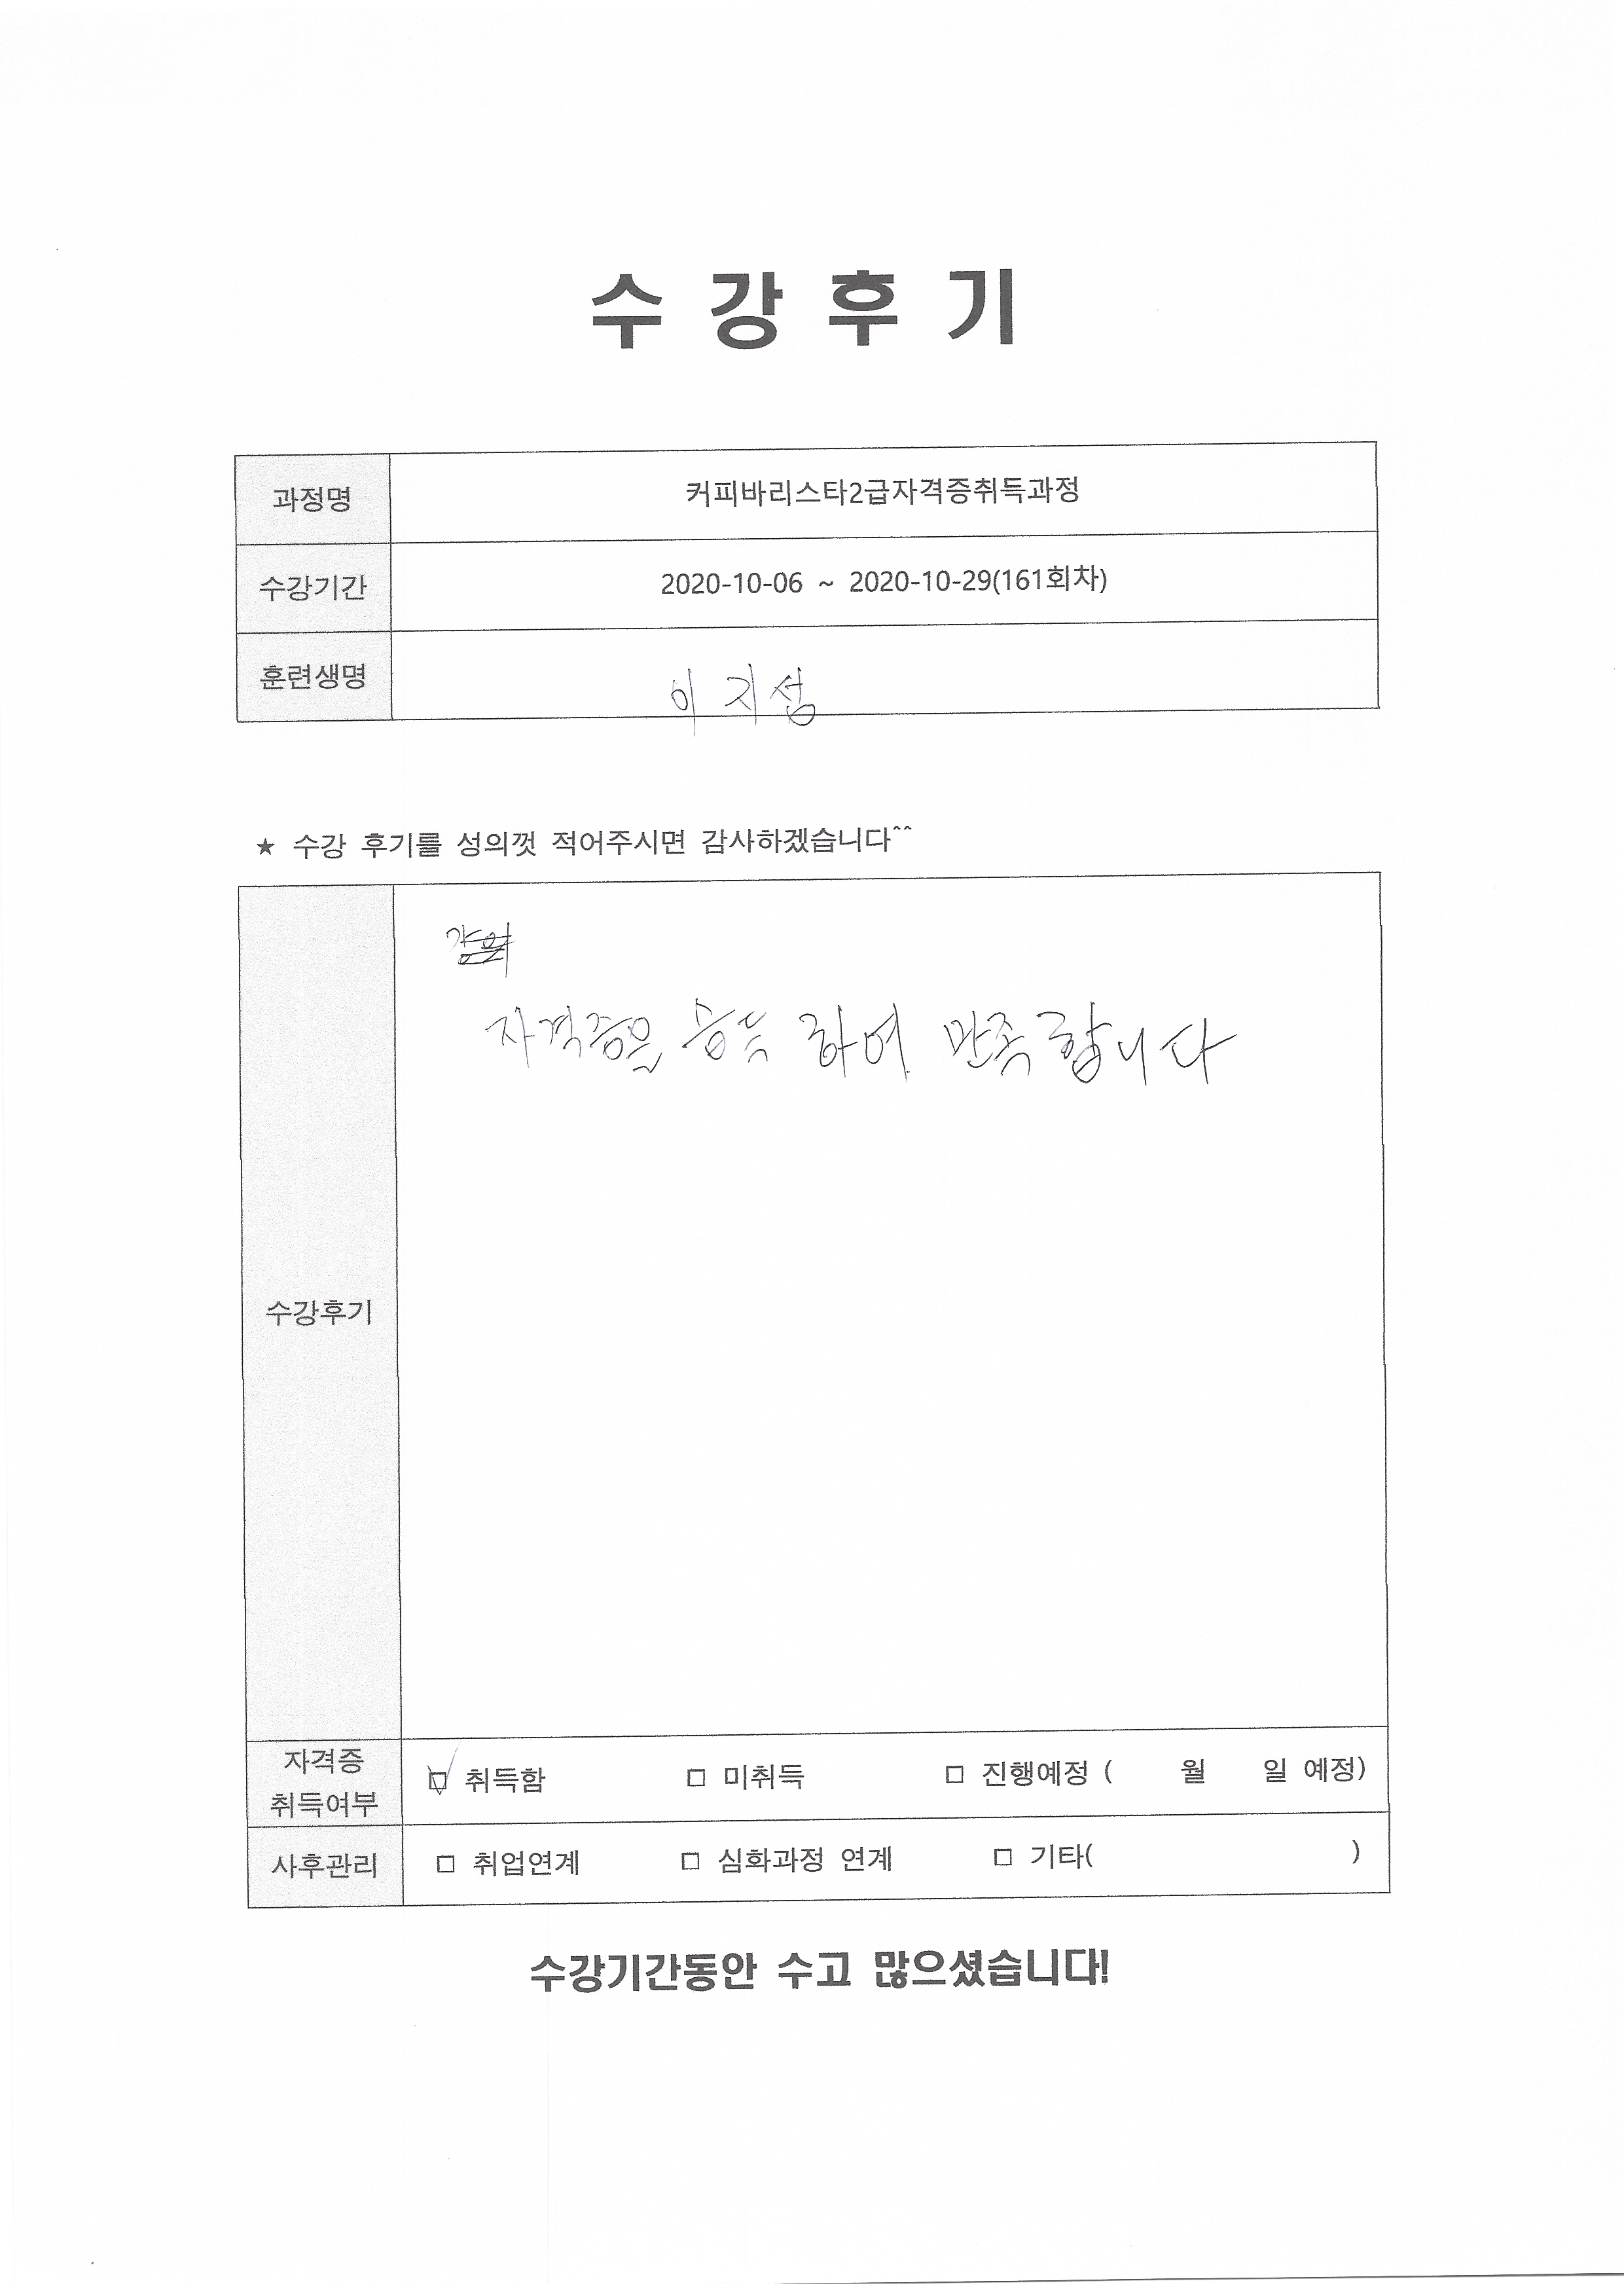 수 강 후 기
과정명 커피바리스타2급자격증취득과정
수강기간 2020-10-06 ~ 2020-10-29(161회차)
훈련생명 이 지섭
★ 수강 후기를 성의껏 적어주시면 감사하겠습니다^^
자격증은 습득 하여 만족합니다
수강후기
자격증
취득여부 ☑ 취득함 □ 미취득 □ 진행예정 ( 월 일 예정)
사후관리 □ 취업연계 □ 심화과정 연계 □ 기타( )
수강기간동안 수고 많으셨습니다!